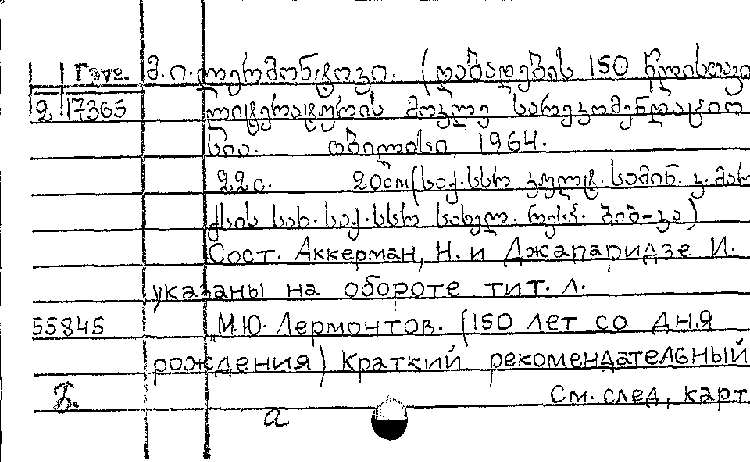 მ. ი. ლერმონტოვი. (დაბადების 150 წლისთავი
2 17365 ლიტერატურის მოკლე სარეკომენდაციო
სია. თბილისი 1964.
22 გ. 20 cm (საქ. სსრ კულტ. სამინ. კ. მარ
ქსის სახ. საქ. სსრ სახელ. რესპ. ბიბ-კა)
Сост. Аккерман, Н. и Джапаридзе И.
указаны на обороте тит. л.
55845 М.Ю. Лермонтов. (150 лет со дня
рождения) Краткий рекомендательный
См. след, карт
а